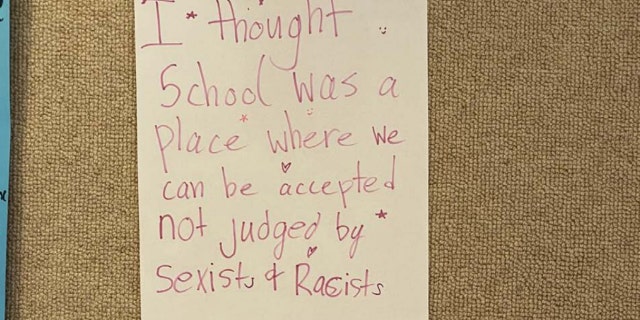 I * thought
School was a
place where we
can be accepted
not judged by *
Sexists & Racists